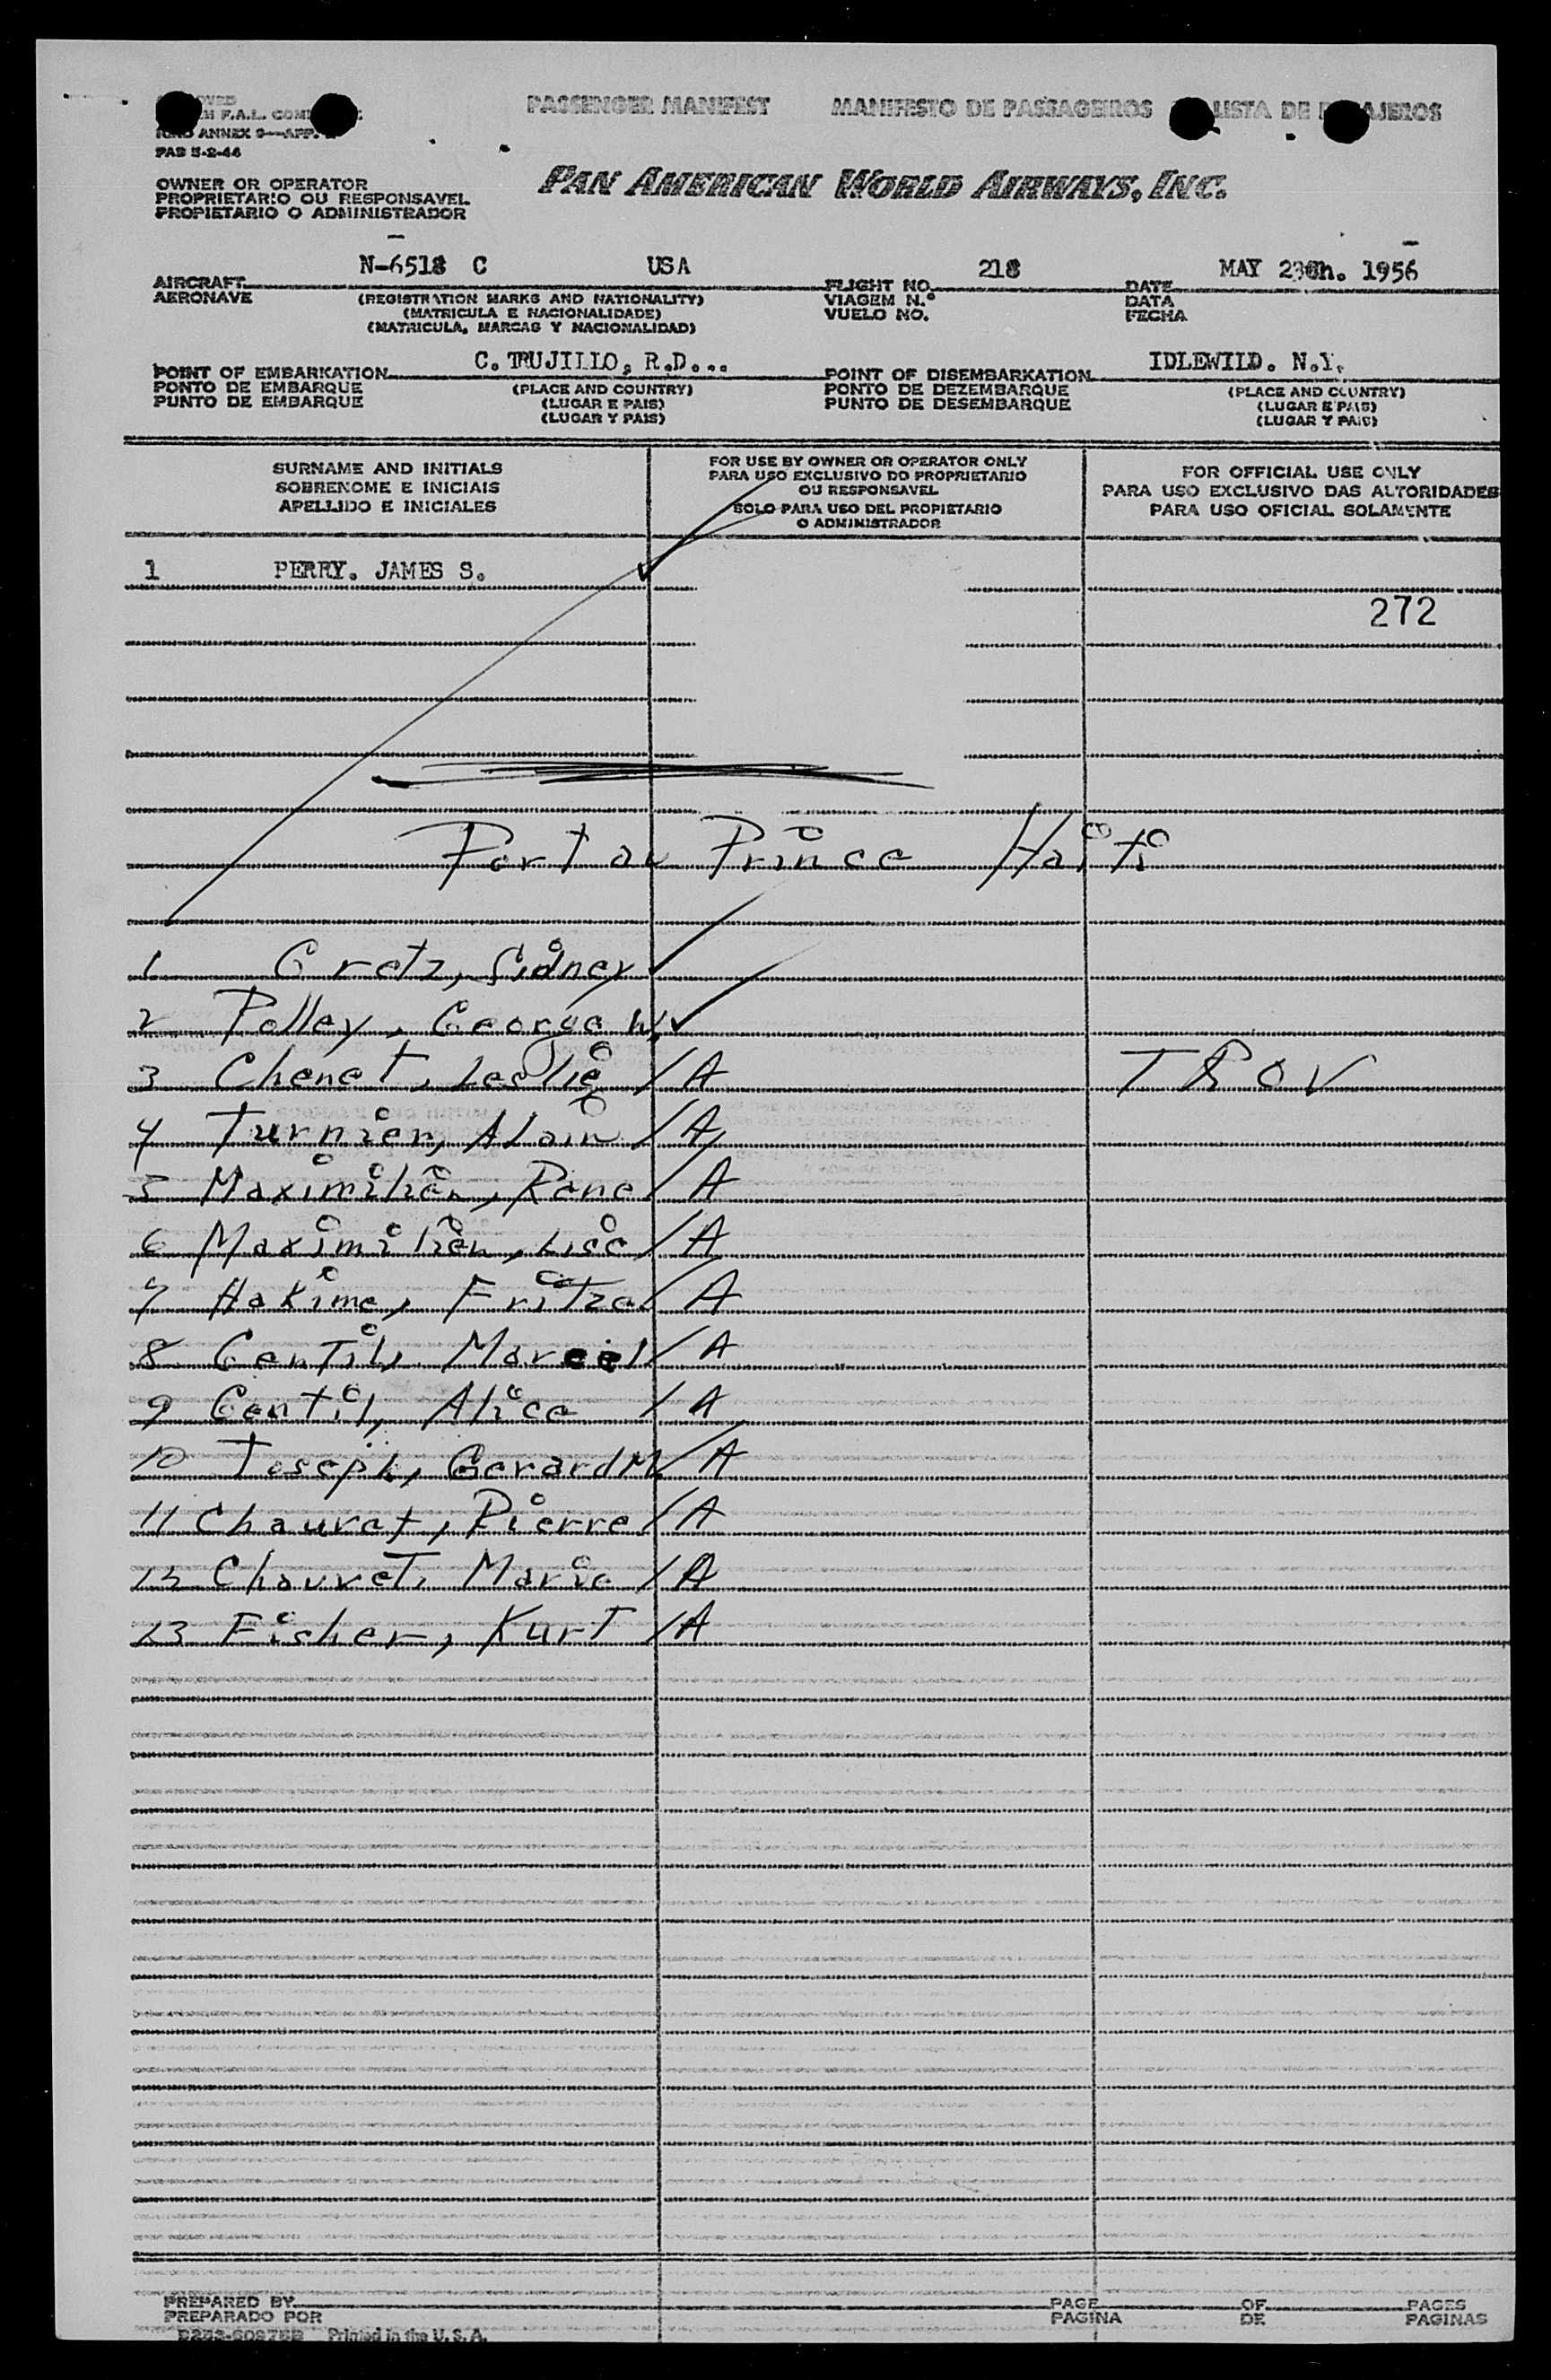 PASSENGER MANIFEST MANIFESTO DE PASSAGEIROS LISTA DE
F.A.L.
ANNEX 9—APP.
PAB 5-2-46
PAN AMERICAN WORLD AIRWAYS, INC.
OWNER OR OPERATOR
PROPRIETARIO OU RESPONSAVEL
PROPIETARIO O ADMINISTRADOR
N-6518 C USA 218 MAY 1956
AIRCRAFT FLIGHT NO. DATE
AERONAVE (REGISTRATION MARKS AND NATIONALITY) VIAGEM N.° DATA
(MATRICULA E NACIONALIDADE) VUELO NO. FECHA
(MATRICULA, MARCAS Y NACIONALIDAD)
C. TRUJILLO, R.D... IDLEWILD. N.Y.
POINT OF EMBARKATION POINT OF DISEMBARKATION
PONTO DE EMBARQUE (PLACE AND COUNTRY) PONTO DE DEZEMBARQUE (PLACE AND COUNTRY)
PUNTO DE EMBARQUE (LUGAR E PAIS) PUNTO DE DESEMBARQUE (LUGAR E PAIS)
(LUGAR Y PAIS) (LUGAR Y PAIS)
SURNAME AND INITIALS
SOBRENOME E INICIAIS
APELLIDO E INICIALES
FOR USE BY OWNER OR OPERATOR ONLY
PARA USO EXCLUSIVO DO PROPRIETARIO
OU RESPONSAVEL
SOLO PARA USO DEL PROPIETARIO
O ADMINISTRADOR
FOR OFFICIAL USE ONLY
PARA USO EXCLUSIVO DAS AUTORIDADES
PARA USO OFICIAL SOLAMENTE
1 PERRY. JAMES S.
272
Port au Prince Haiti
1 Gretz, Sidney
2 Polley, George W,
3 Chenet, Leslie /A
4 Turnier, Alain /A
5 Maximilien, Rene /A
6 Maximilien, Lise /A
7 Hakime, Fritza /A
8 Gentil, Marcel /A
9 Gentil, Alice /A
10 Joseph, Gerard M /A
11 Chauvet, Pierre /A
12 Chauvet, Marie /A
13 Fisher, Kurt /A
PREPARED BY PAGE OF PAGES
PREPARADO POR PAGINA DE PAGINAS
Printed in the U.S.A.